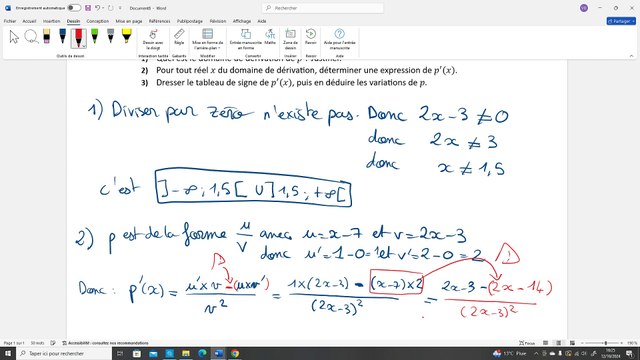 Enregistrement automatique Document5 - Word Rechercher
Fichier Accueil Insertion Dessin Conception Mise en page Références Publipostage Révision Affichage Aide
Dessin avec le doigt Règle Mise en forme de l'arrière-plan Encre manuscrite en forme Encre manuscrite en Maths Insérer Aide pour l'entrée manuscrite
Outils de dessin
1) Quel est le domaine de dérivation de p ? Justifier.
2) Pour tout réel x du domaine de dérivation, déterminer une expression de p'(x).
3) Dresser le tableau de signe de p'(x), puis en déduire les variations de p.
1) Diviser par zéro n'existe pas. Donc 2x-3 ≠ 0
donc 2x ≠ 3
donc x ≠ 1,5
c'est ]-∞ ; 1,5[ U ]1,5 ; +∞[
2) p est de la forme u/v avec u = x-7 et v = 2x-3
donc u' = 1-0 = 1 et v' = 2-0 = 2
Donc : p'(x) = (u'×v - (u×v'))/v² = (1×(2x-3) - (x-7)×2)/(2x-3)² = (2x-3-(2x-14))/(2x-3)²
Page 1 sur 1 50 mots Accessibilité : consultez nos recommandations
Taper ici pour rechercher 13°C Pluie 16:05
12/10/2024